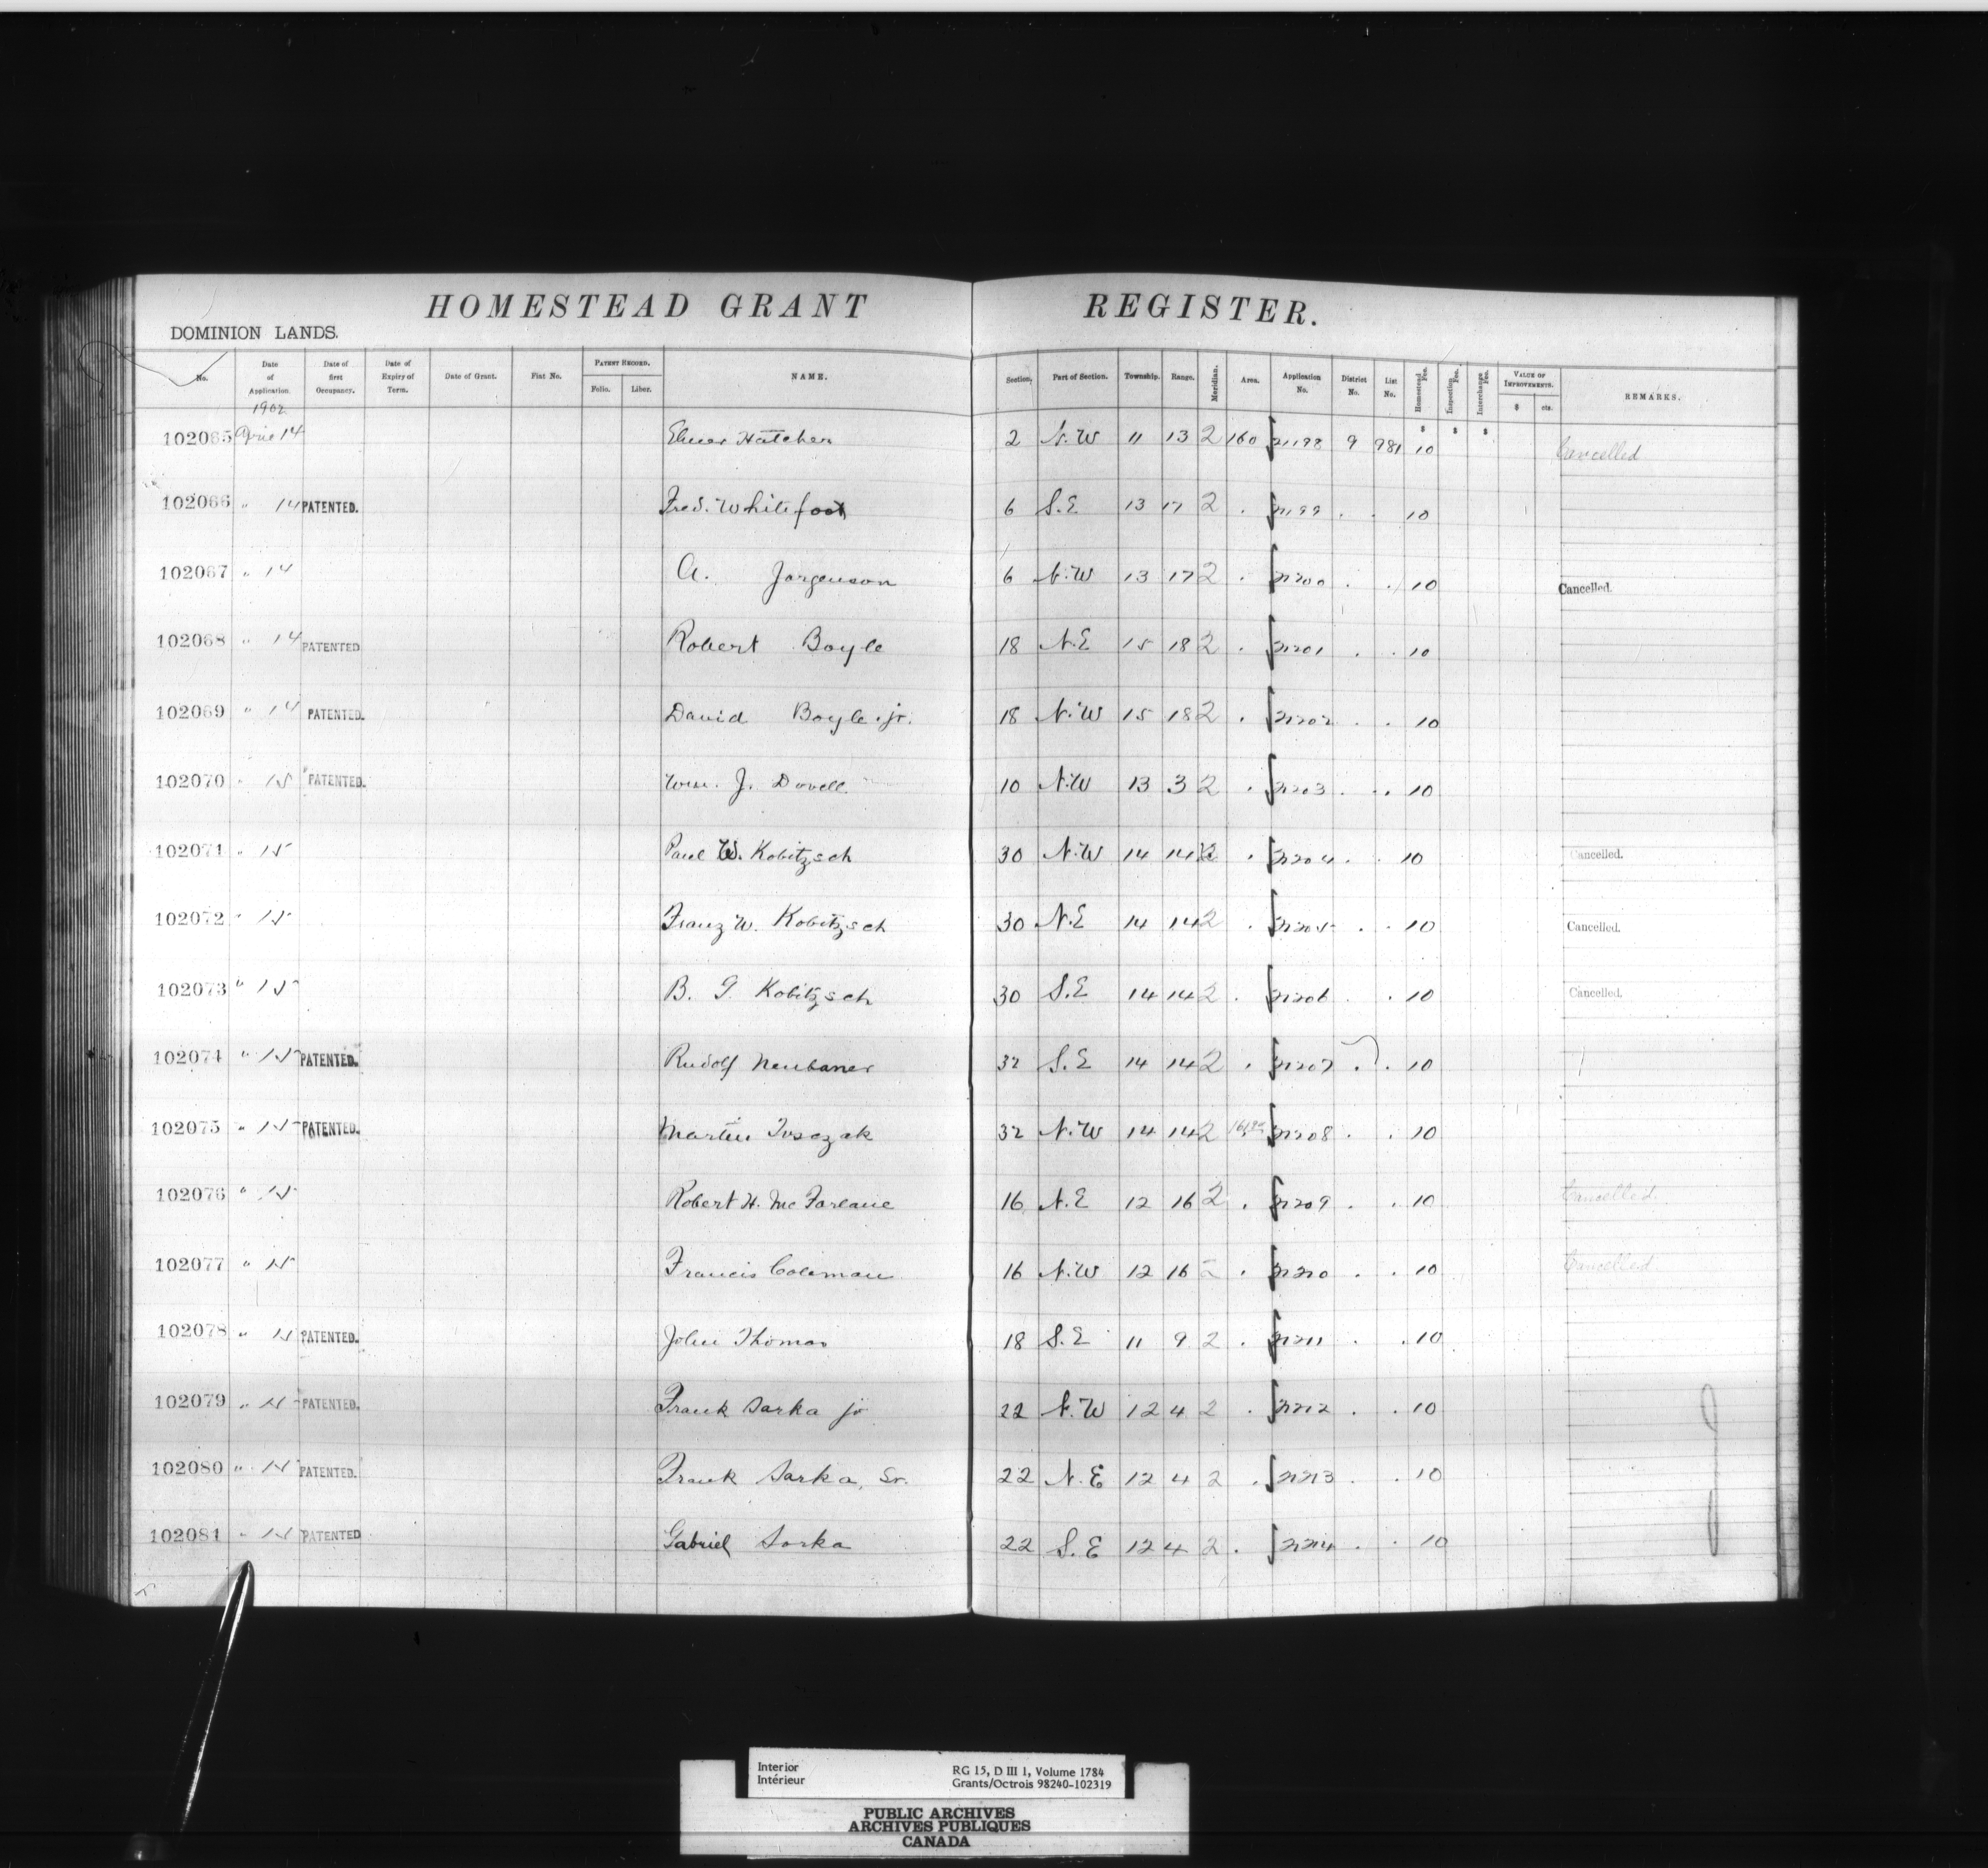 HOMESTEAD GRANT REGISTER.
DOMINION LANDS.
No. Date of Application. Date of first Occupancy. Date of Expiry of Term. Date of Grant. Fiat No. PATENT RECORD. Folio. Liber. NAME. Section. Part of Section. Township. Range. Meridian. Area. Application No. District No. List No. Homestead Fee. Inspection Fee. Interchange Fee. VALUE OF IMPROVEMENTS. $ cts. REMARKS.
1902
102065 April 14 Elmer Hatcher 2 N.W 11 13 2 160 21198 9 981 $ 10 $ $ Cancelled
102066 " 14 PATENTED. Fred. Whitefoot 6 S.E 13 17 2 . 21199 . . 10
102067 " 14 A. Jorgenson 6 N.W 13 17 2 . 21200 . . 10 Cancelled.
102068 " 14 PATENTED Robert Boyle 18 N.E 15 18 2 . 21201 . . 10
102069 " 14 PATENTED. David Boyle jr. 18 N.W 15 18 2 . 21202 . . 10
102070 " 15 PATENTED. Wm. J. Dovell 10 N.W 13 3 2 . 21203 . . 10
102071 " 15 Paul W. Kobitzsch 30 N.W 14 14 2 . 21204 . . 10 Cancelled.
102072 " 15 Franz W. Kobitzsch 30 N.E 14 14 2 . 21205 . . 10 Cancelled.
102073 " 15 B. G. Kobitzsch 30 S.E 14 14 2 . 21206 . 10 Cancelled.
102074 " 15 PATENTED. Rudolf Neubauer 32 S.E 14 14 2 . 21207 . . 10
102075 " 15 PATENTED. Martin 32 N.W 14 14 2 21208 . . 10
102076 " 15 Robert H. McFarlane 16 N.E 12 16 2 . 21209 . . 10 Cancelled.
102077 " 15 Francis Coleman 16 N.W 12 16 2 . 21210 . . 10 Cancelled.
102078 " 15 PATENTED. John Thomas 18 S.E 11 9 2 . 21211 . . 10
102079 " 15 PATENTED. Frank Sarka jr 22 N.W 12 4 2 . 21212 . . 10
102080 " 15 PATENTED. Frank Sarka, Sr. 22 N.E 12 4 2 . 21213 . 10
102081 " 15 PATENTED Gabriel Sorka 22 S.E 12 4 2 . 21214 . . 10
Interior RG 15, D III 1, Volume 1784
Intérieur Grants/Octrois 98240-102319
PUBLIC ARCHIVES
ARCHIVES PUBLIQUES
CANADA